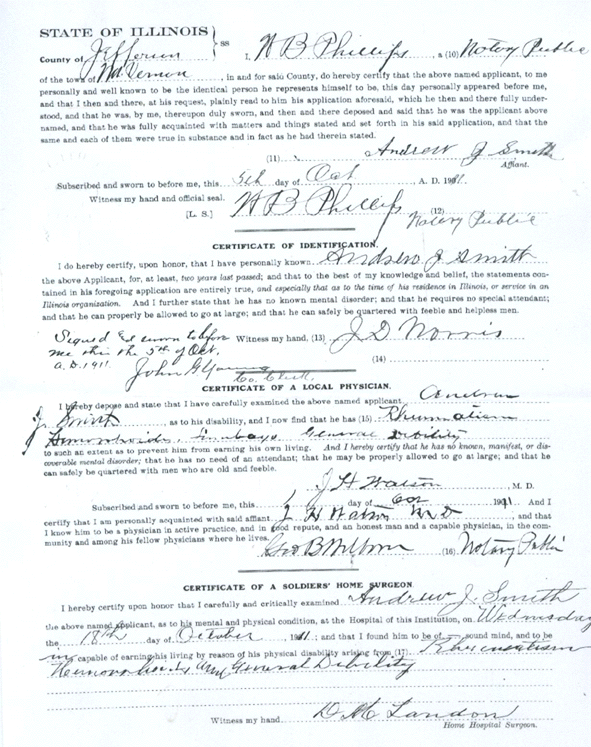 STATE OF ILLINOIS
County of Jefferson } ss I, W B Phillips, a (10) Notary Public
of the town of Mt Vernon, in and for said County, do hereby certify that the above named applicant, to me
personally and well known to be the identical person he represents himself to be, this day personally appeared before me,
and that I then and there, at his request, plainly read to him his application aforesaid, which he then and there fully under-
stood, and that he was, by me, thereupon duly sworn, and then and there deposed and said that he was the applicant above
named, and that he was fully acquainted with matters and things stated and set forth in his said application, and that the
same and each of them were true in substance and in fact as he had therein stated.
(11) Andrew J Smith
Affiant.
Subscribed and sworn to before me, this 5th day of Oct A. D. 1911.
Witness my hand and official seal.
[L. S.] W B Phillips (12)
Notary Public
CERTIFICATE OF IDENTIFICATION.
I do hereby certify, upon honor, that I have personally known Andrew J Smith
the above Applicant, for, at least, two years last passed; and that to the best of my knowledge and belief, the statements con-
tained in his foregoing application are entirely true, and especially that as to the time of his residence in Illinois, or service in an
Illinois organization. And I further state that he has no known mental disorder; and that he requires no special attendant;
and that he can properly be allowed to go at large; and that he can be safely quartered with feeble and helpless men.
Signed & sworn to before Witness my hand, (13) J D Norris
me this the 5th of Oct.
A.D. 1911 (14)
John G Young
Co. Clerk
CERTIFICATE OF A LOCAL PHYSICIAN.
I hereby depose and state that I have carefully examined the above named applicant Andrew
J. Smith as to his disability, and I now find that he has (15) Rheumatism
Lumbago General Debility
to such an extent as to prevent him from earning his own living. And I hereby certify that he has no known, manifest, or dis-
coverable mental disorder; that he has no need of an attendant; that he may be properly allowed to go at large; and that he
can safely be quartered with men who are old and feeble.
J H Watson M. D.
Subscribed and sworn to before me, this day of Oct 1911 And I
certify that I am personally acquainted with said affiant J H Watson M D, and that
I know him to be a physician in active practice, and in good repute, and an honest man and a capable physician, in the com-
munity and among his fellow physicians where he lives.
Geo B Welborn (16) Notary Public
CERTIFICATE OF A SOLDIERS' HOME SURGEON.
I hereby certify upon honor that I carefully and critically examined Andrew J. Smith
the above named Applicant, as to his mental and physical condition, at the Hospital of this Institution, on Wednesday
the 18th day of October 1911; and that I found him to be of sound mind, and to be
in capable of earning his living by reason of his physical disability arising from (17) Rheumatism
Hemorrhoids and General Debility
Witness my hand D M Landon
Home Hospital Surgeon.